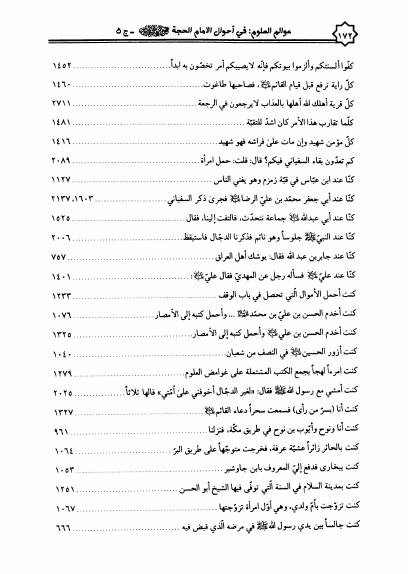 ١٧٢ عوالم العلوم: في أحوال الإمام الحجة ـ ج ٥
كفّوا ألسنتكم وألزموا بيوتكم فإنّه لا يصيبكم أمر تخصّون به أبداً ١٤٥٢
كلّ راية ترفع قبل قيام القائم، فصاحبها طاغوت ١٤٦٠
كلّ قرية أهلك الله أهلها بالعذاب لا يرجعون في الرجعة ٢٧١١
كلّما تقارب هذا الأمر كان أشدّ للتقيّة ١٤٨١
كلّ مؤمن شهيد وإن مات على فراشه فهو شهيد ١٤١٦
كم تعدّون بقاء السفياني فيكم؟ قال: قلت: حمل امرأة ٢٠٨٩
كنّا عند ابن عبّاس في قبّة زمزم وهو يفتي الناس ١١٢٧
كنّا عند أبي جعفر محمّد بن عليّ الرضا فجرى ذكر السفياني ١٦٠٣، ٢١٣٧
كنّا عند أبي عبدالله جماعة نتحدّث، فالتفت إلينا، فقال ١٥٢٥
كنّا عند النبيّ جلوساً وهو نائم فذكرنا الدجّال فاستيقظ ٢٠٠٦
كنّا عند جابر بن عبد الله فقال: يوشك أهل العراق ٧٥٧
كنّا عند عليّ فسأله رجل عن المهديّ فقال عليّ: ١٤٠١
كنت أحمل الأموال الّتي تحصل في باب الوقف ١٢٣٣
كنت أخدم الحسن بن عليّ بن محمّد ... وأحمل كتبه إلى الأمصار ١٠٧٦
كنت أخدم الحسن بن علي وأحمل كتبه إلى الأمصار ١٣٢٥
كنت أزور الحسين في النصف من شعبان ١٠٤٠
كنت امرءاً لهجاً بجمع الكتب المشتملة على غوامض العلوم ١٢٧٩
كنت أمشي مع رسول الله فقال: «لغير الدجّال أخوفني على أمّتي» قالها ثلاثاً ٢٠٢٥
كنت أنا (بسرّ من رأى) فسمعت سحراً دعاء القائم ١٣٢٧
كنت أنا ونوح وأيّوب بن نوح في طريق مكّة، فنزلنا ٩٦١
كنت بالحائر زائراً عشيّة عرفة، فخرجت متوجّهاً على طريق البرّ ١٠٦٤
كنت ببخارى فدفع إليّ المعروف بابن جاوشير ١٠٥٣
كنت بمدينة السلام في السنة الّتي توفّي فيها الشيخ أبو الحسن ١٢٥١
كنت تزوّجت بأمّ ولدي، وهي أوّل امرأة تزوّجتها ١٠٦٧
كنت جالساً بين يدي رسول الله في مرضه الّذي قبض فيه ٦٦٦